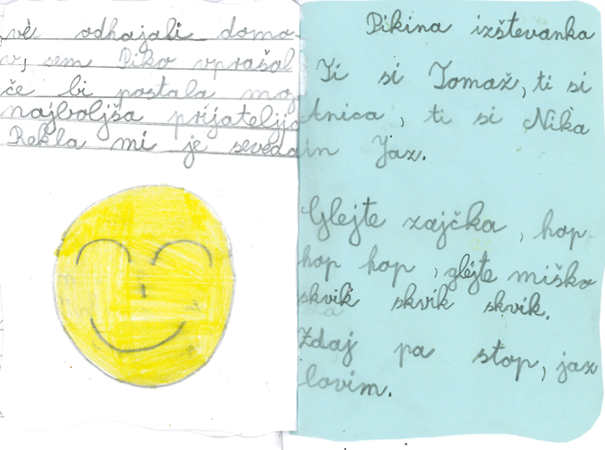 vè odhajali domo-
v, sem Piko vprašal
če bi postala moj
najboljša prijateljic
Rekla mi je seveda
Pikina izštevanka
Ti si Tomaž, ti si
Anica, ti si Nika
in Jaz.
Glejte zajčka, hop
hop hop, glejte miško
skvik skvik skvik.
Zdaj pa stop, jaz
lovim.